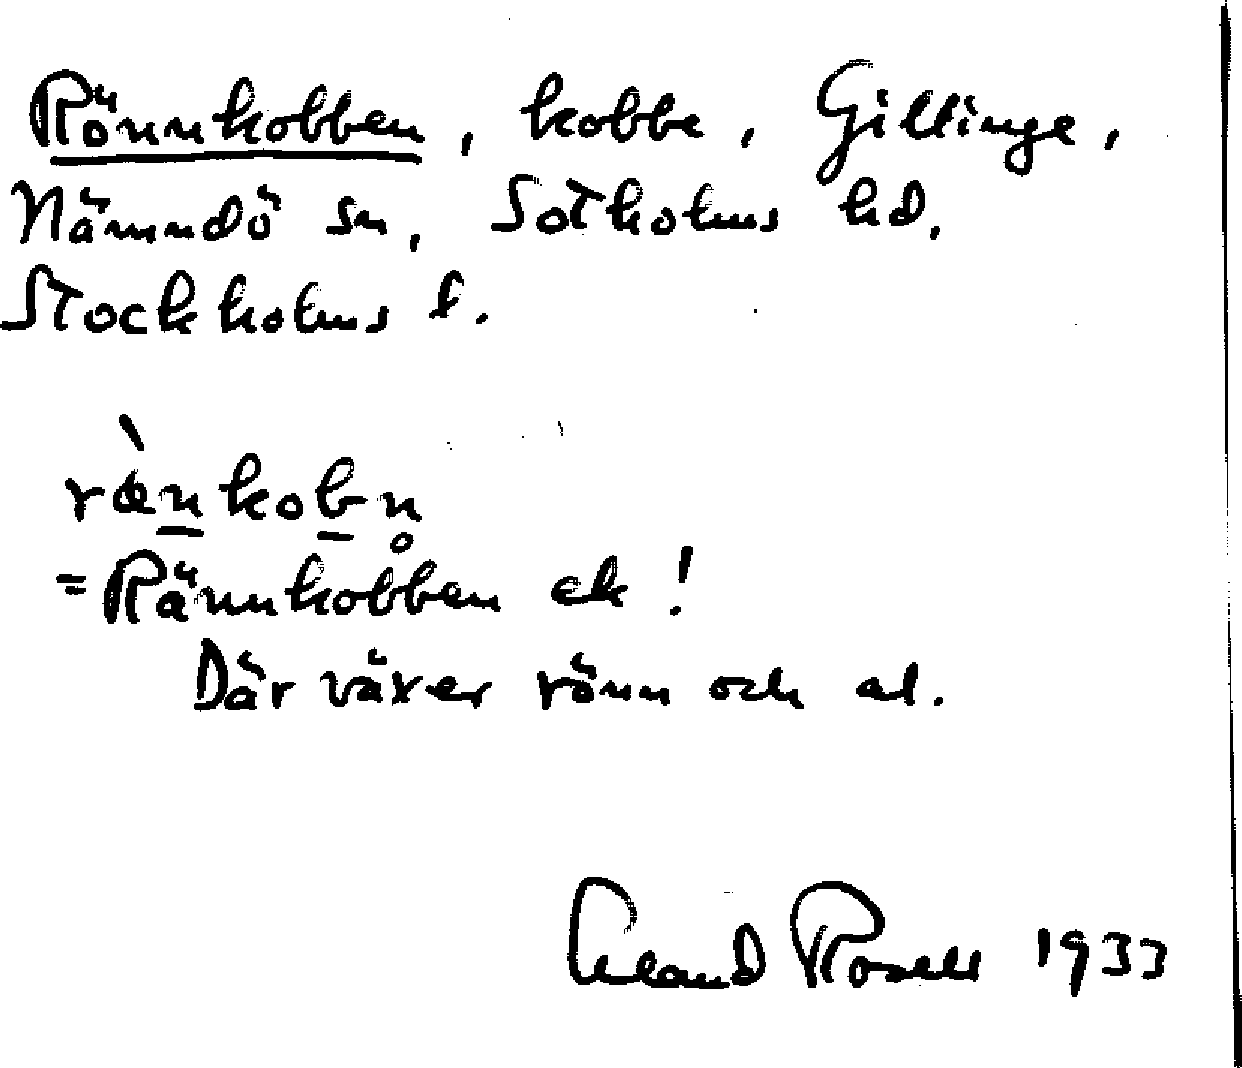 Rönnkobben, kobbe, Gillinge,
Nämndö sn, Sotholms hd,
Stockholms l.
ræ̀nkobn̥
=Rännkobben ek!
Där växer rönn och al.
Rosell 1933